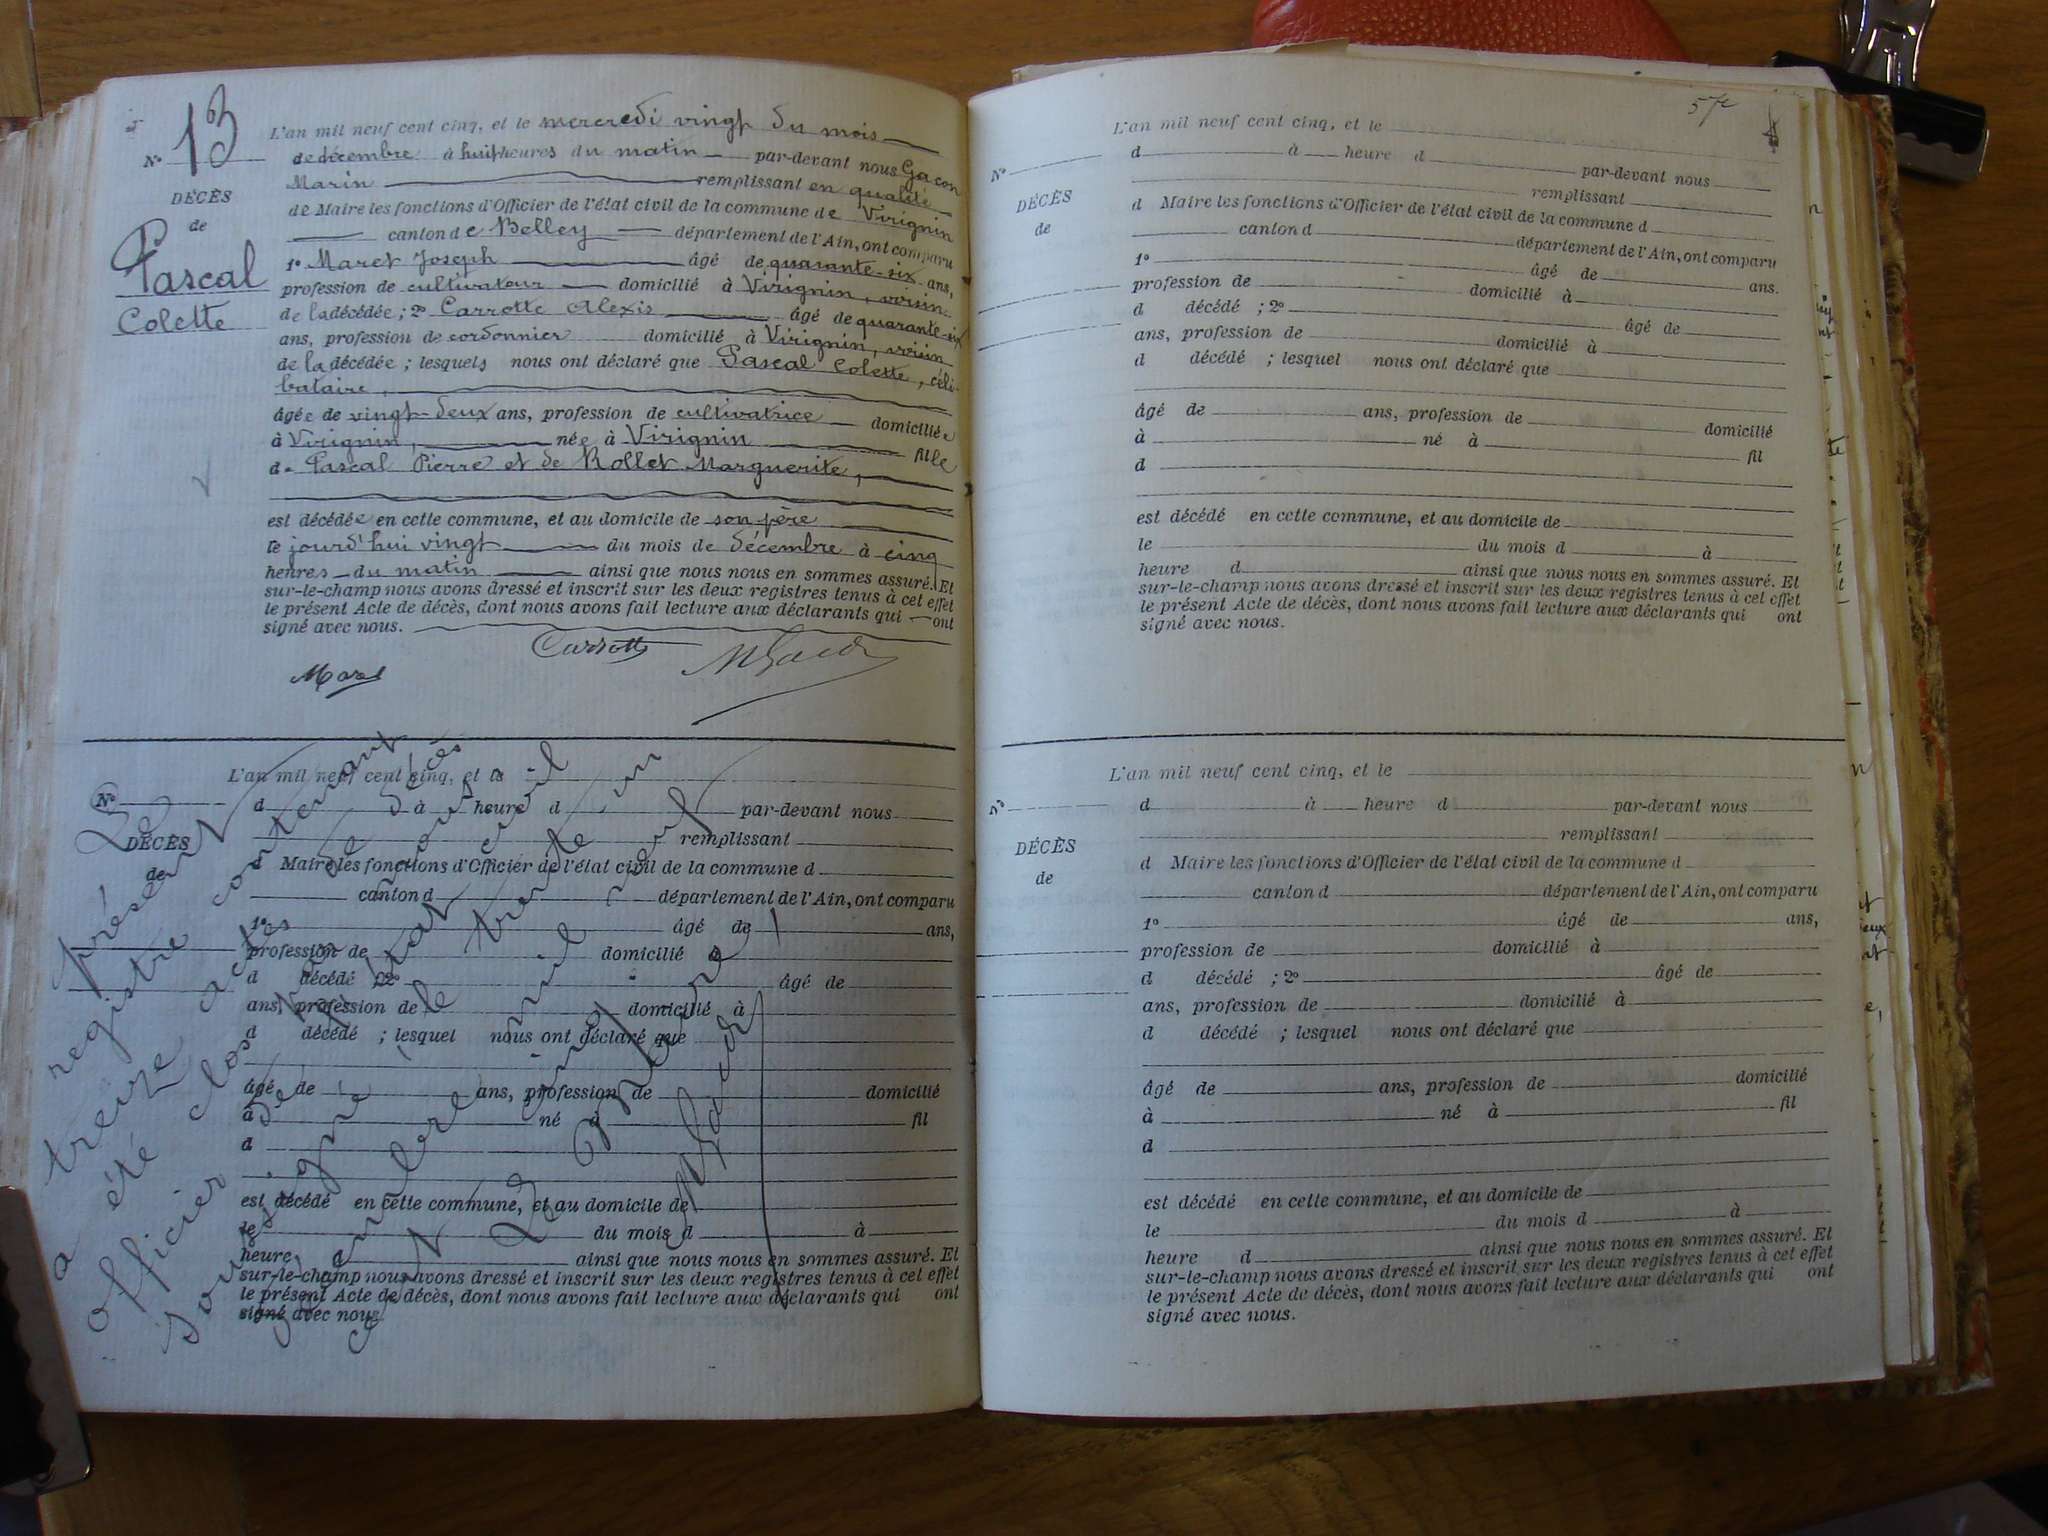 Nº 13
DÉCÈS
de
Pascal
Colette
L'an mil neuf cent cinq, et le mercredi vingt du mois
de décembre à huit heures du matin par-devant nous Gacon
Marin remplissant en qualité
de Maire les fonctions d'Officier de l'état civil de la commune de Virignin
canton de Belley département de l'Ain, ont comparu
1º Maret Joseph âgé de quarante-six ans,
profession de cultivateur domicilié à Virignin, voisin
de la décédée ; 2º Carrotte Alexis âgé de quarante-six
ans, profession de cordonnier domicilié à Virignin, voisin
de la décédée ; lesquels nous ont déclaré que Pascal Colette, céli-
bataire,
âgée de vingt-deux ans, profession de cultivatrice domiciliée
à Virignin, née à Virignin fille
de Pascal Pierre et de Rollet Marguerite,
est décédée en cette commune, et au domicile de son père
le jourd'hui vingt du mois de décembre à cinq
heures du matin ainsi que nous nous en sommes assuré. Et
sur-le-champ nous avons dressé et inscrit sur les deux registres tenus à cet effet
le présent Acte de décès, dont nous avons fait lecture aux déclarants qui ont
signé avec nous.
Carrotte MGacon
Maret
Nº
DÉCÈS
de
L'an mil neuf cent cinq, et le
d à heure d par-devant nous
remplissant
d Maire les fonctions d'Officier de l'état civil de la commune d
canton d département de l'Ain, ont comparu
1º âgé de ans,
profession de domicilié à
d décédé ; 2º âgé de
ans, profession de domicilié à
d décédé ; lesquel nous ont déclaré que
âgé de ans, profession de domicilié
à né à fil
d
est décédé en cette commune, et au domicile de
le du mois d à
heure d ainsi que nous nous en sommes assuré. Et
sur-le-champ nous avons dressé et inscrit sur les deux registres tenus à cet effet
le présent Acte de décès, dont nous avons fait lecture aux déclarants qui ont
signé avec nous.
Le présent
registre contenant
treize actes de décès
a été clos par nous
officier de l'état civil
soussigné le trente un
décembre mil neuf
cent cinq
Le Maire
MGacon
57e
Nº
DÉCÈS
de
L'an mil neuf cent cinq, et le
d à heure d par-devant nous
remplissant
d Maire les fonctions d'Officier de l'état civil de la commune d
canton d département de l'Ain, ont comparu
1º âgé de ans.
profession de domicilié à
d décédé ; 2º âgé de
ans, profession de domicilié à
d décédé ; lesquel nous ont déclaré que
âgé de ans, profession de domicilié
à né à fil
d
est décédé en cette commune, et au domicile de
le du mois d à
heure d ainsi que nous nous en sommes assuré. Et
sur-le-champ nous avons dressé et inscrit sur les deux registres tenus à cet effet
le présent Acte de décès, dont nous avons fait lecture aux déclarants qui ont
signé avec nous.
Nº
DÉCÈS
de
L'an mil neuf cent cinq, et le
d à heure d par-devant nous
remplissant
d Maire les fonctions d'Officier de l'état civil de la commune d
canton d département de l'Ain, ont comparu
1º âgé de ans,
profession de domicilié à
d décédé ; 2º âgé de
ans, profession de domicilié à
d décédé ; lesquel nous ont déclaré que
âgé de ans, profession de domicilié
à né à fil
d
est décédé en cette commune, et au domicile de
le du mois d à
heure d ainsi que nous nous en sommes assuré. Et
sur-le-champ nous avons dressé et inscrit sur les deux registres tenus à cet effet
le présent Acte de décès, dont nous avons fait lecture aux déclarants qui ont
signé avec nous.